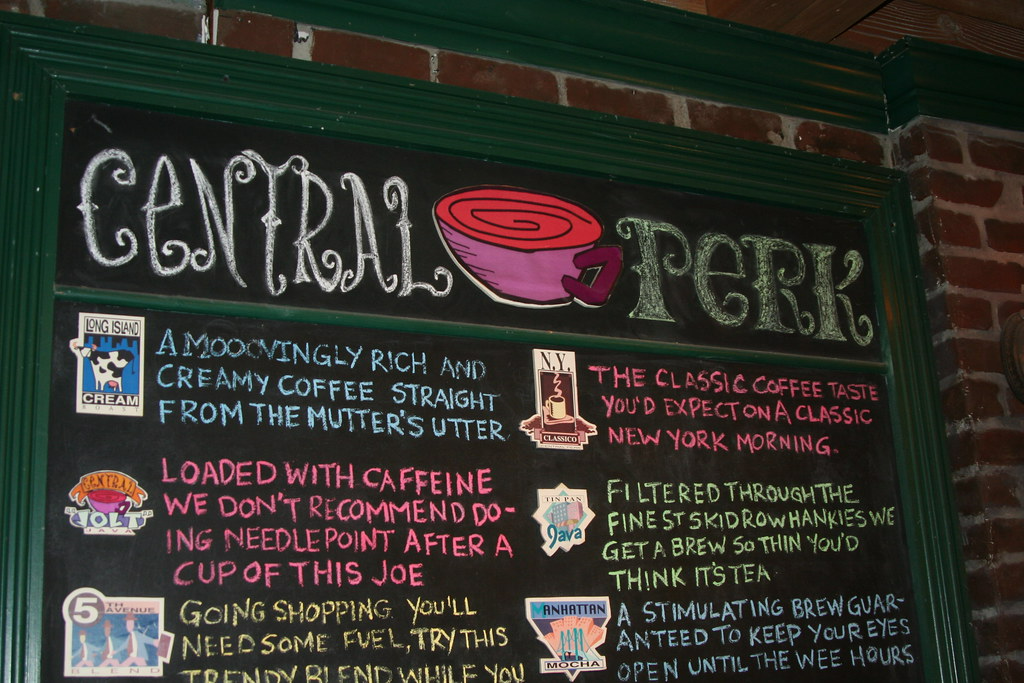 CENTRAL PERK
LONG ISLAND
CREAM
ROAST
A MOOOVINGLY RICH AND
CREAMY COFFEE STRAIGHT
FROM THE MUTTER'S UTTER
N.Y.
CLASSICO
THE CLASSIC COFFEE TASTE
YOU'D EXPECT ON A CLASSIC
NEW YORK MORNING.
CENTRAL
JOLT
JAVA
LOADED WITH CAFFEINE
WE DON'T RECOMMEND DO-
ING NEEDLEPOINT AFTER A
CUP OF THIS JOE
TIN PAN
Java
FILTERED THROUGH THE
FINEST SKID ROW HANKIES WE
GET A BREW SO THIN YOU'D
THINK IT'S TEA
5TH AVENUE
BLEND
GOING SHOPPING. YOU'LL
NEED SOME FUEL, TRY THIS
TRENDY BLEND WHILE YOU
MANHATTAN
MOCHA
A STIMULATING BREW GUAR-
ANTEED TO KEEP YOUR EYES
OPEN UNTIL THE WEE HOURS